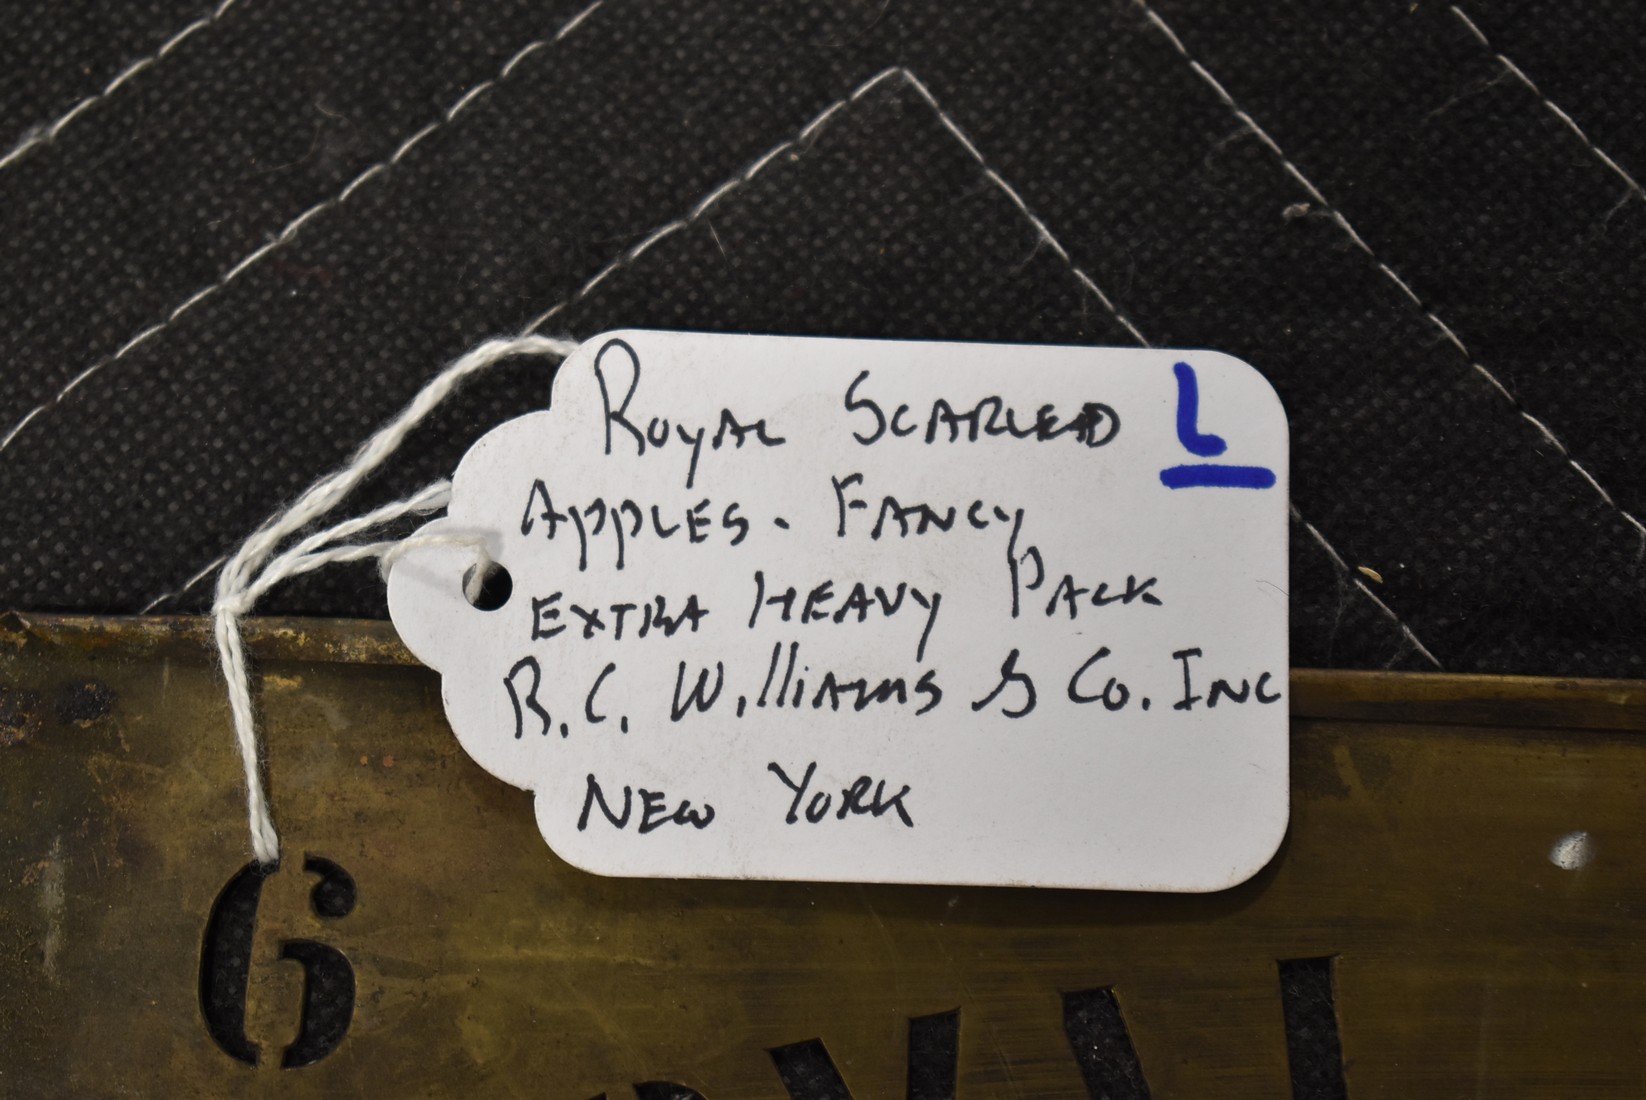 Royal Scarled L
Apples. Fancy
Extra Heavy Pack
R.C. Williams & Co. Inc
New York
6